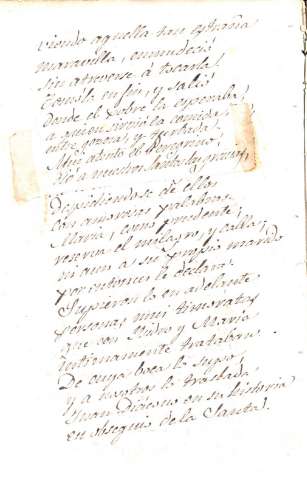 viendo aquella tan estraña
maravilla, enmudeció
sin atreverse, á tocarla.
Tomóla en fin, y salió
Donde el Pobre la esperaba;
a quien sirvió la comida,
entre gozosa, y turbada.
dió a nuestros
Despidiendose de ellos
con amorosas palabras.
Maria, como prudente,
reserva el milagro, y calla;
ni aun a su propio marido
por entonces lo declara.
Supieron lo en adelante
personas mui timoratas
que con Isidro y Maria
intimamente trataban.
De cuya boca lo supo,
y a nosotros lo traslada
Juan Diácono en su historia
en obsequio de la Santa.